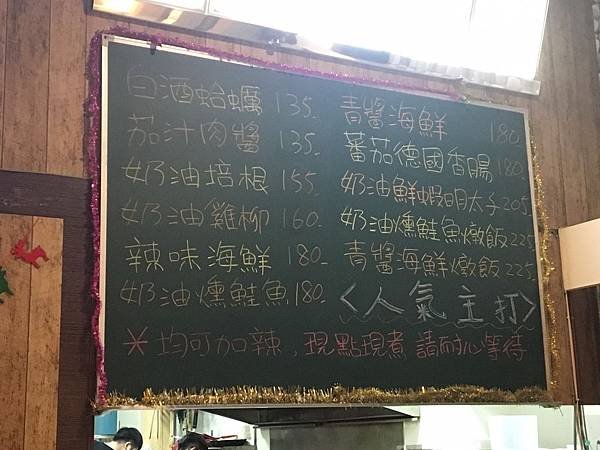 白酒蛤蠣 135.
茄汁肉醬 135.
奶油培根 155.
奶油雞柳 160.
辣味海鮮 180.
奶油燻鮭魚 180.
青醬海鮮 180.
蕃茄德國香腸 180.
奶油鮮蝦明太子 205.
奶油燻鮭魚燉飯 225.
青醬海鮮燉飯 225.
<人氣主打>
＊均可加辣，現點現煮 請耐心等待